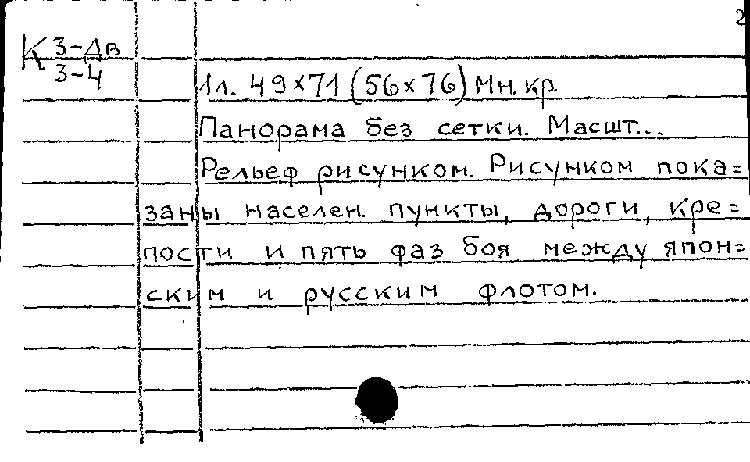 2
К 3-Дв
3-4
1 л. 49×71 (56×76) Мн. кр.
Панорама без сетки. Масшт...
Рельеф рисунком. Рисунком пока=
заны населен. пункты, дороги, кре=
пости и пять фаз боя между япон=
ским и русским флотом.